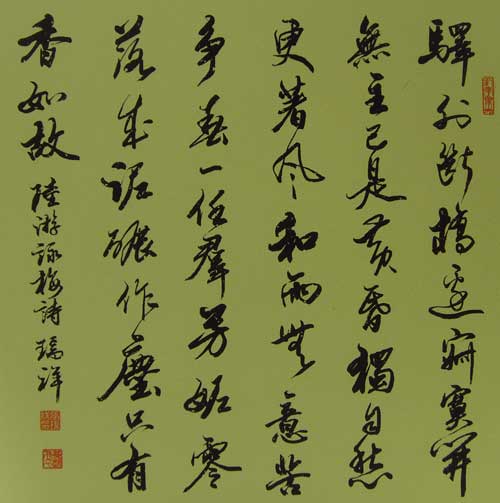 驛外斷橋邊寂寞開
無主已是黃昏獨自愁
更著風和雨無意苦
爭春一任羣芳妬零
落成泥碾作塵只有
香如故 陸游詠梅詩 瑞祥